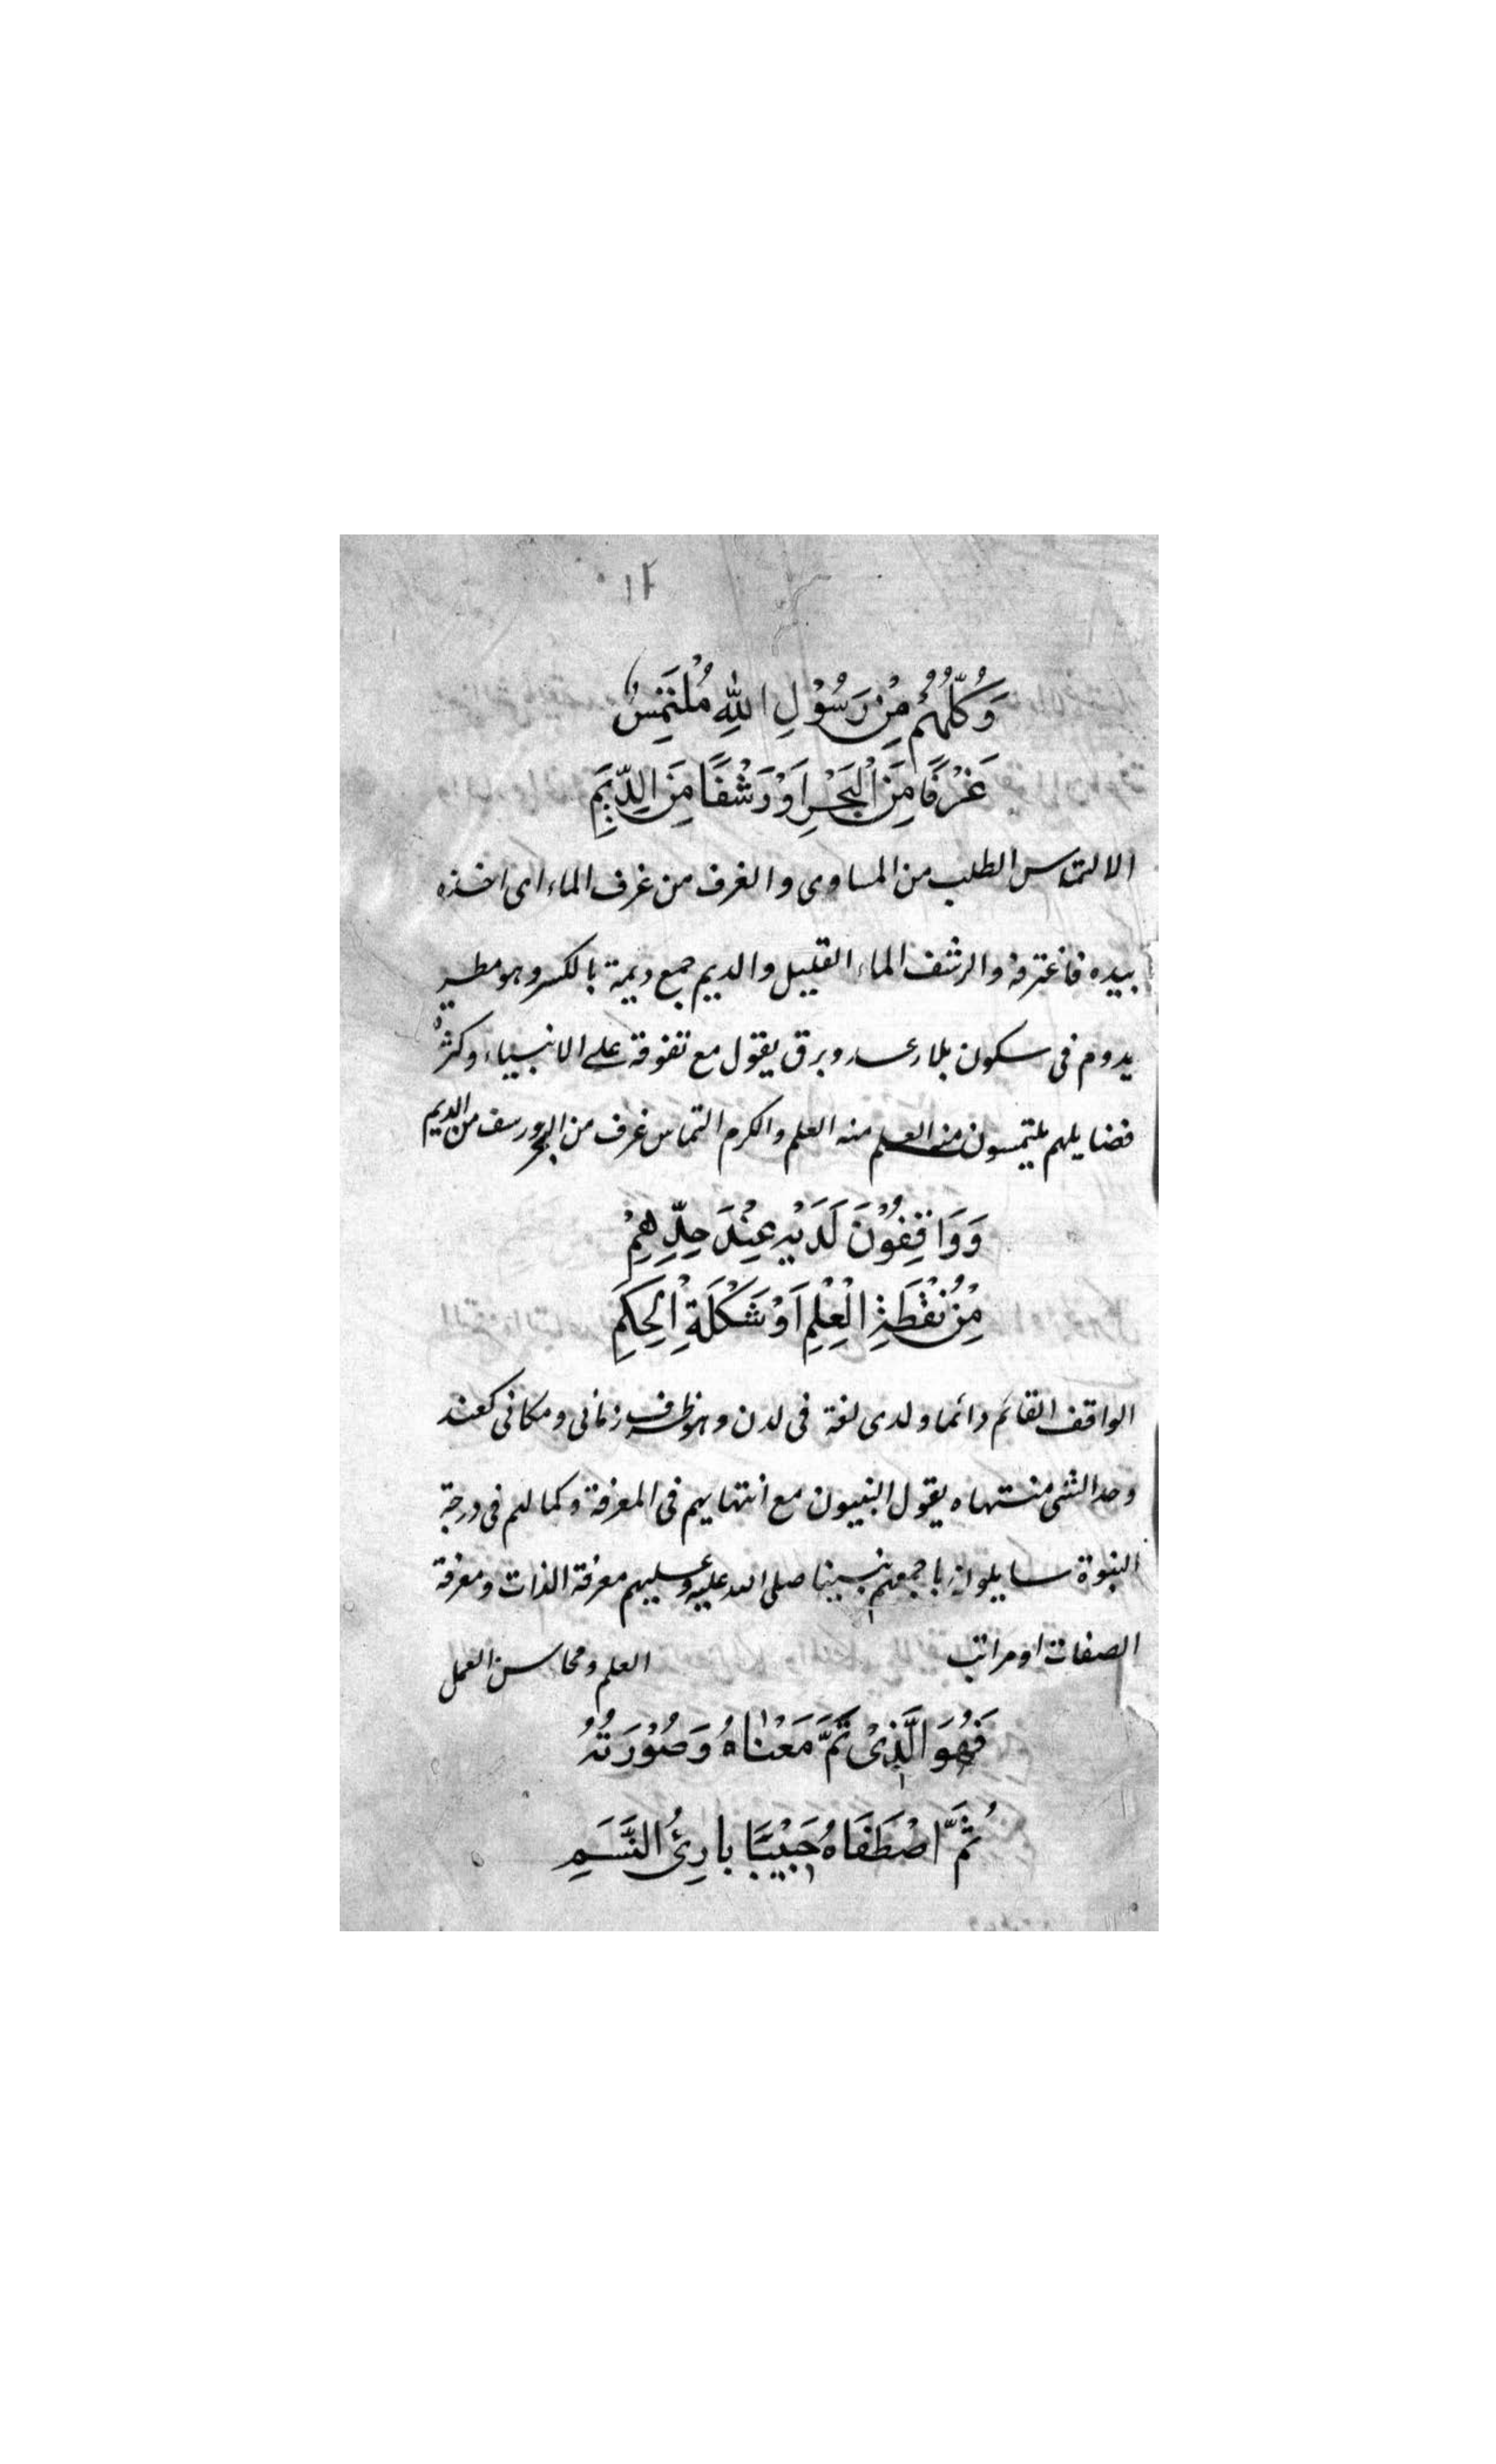 وَكُلُّهُمْ مِنْ رَسُوْلِ اللهِ مُلْتَمِسٌ
غَرْفًا مِنَ الْبَحْرِ اَوْ رَشْفًا مِنَ الدِّيَمِ
الالتماس الطلب من المساوى والغرف من غرف الماء اى اخذه
بيده فاغترفه والرشف الماء القليل والديم جمع ديمة بالكسر وهو مطر
يدوم فى سكون بلا رعد وبرق يقول مع تفوقه على الانبياء وكثرة
فضايلهم يلتمسون منه العلم منه العلم والكرم التماس غرف من البحر ورسف من الديم
وَوَاقِفُوْنَ لَدَيْهِ عِنْدَ حَدِّهِمِ
مِنْ نُقْطَةِ الْعِلْمِ اَوْ شَكْلَةِ الْحِكَمِ
الواقف القائم دائما ولدى لغة فى لدن وهو ظرف زمانى ومكانى كعند
وحد الشى منتهاه يقول النبيون مع انتهايهم فى المعرفة وكمالهم فى درجة
النبوة سايلون باجمعهم نبينا صلى الله عليه وعليهم معرفة الذات ومعرفة
الصفات او مراتب العلم ومحاسن العمل
فَهُوَ الَّذِىْ تَمَّ مَعْنَاهُ وَصُوْرَتُهُ
ثُمَّ اصْطَفَاهُ حَبِيْبًا بارِئُ النَّسَمِ